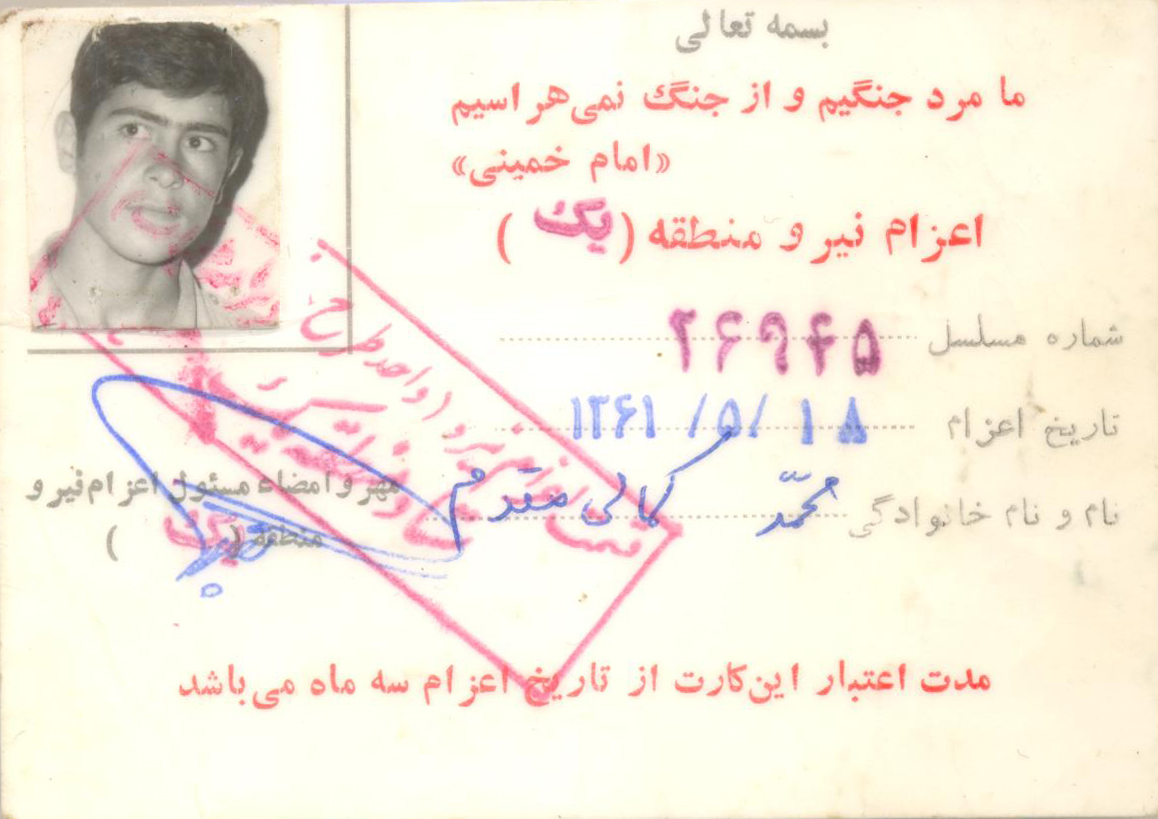 بسمه تعالی
ما مرد جنگیم و از جنگ نمی‌هراسیم
«امام خمینی»
اعزام نیرو منطقه (یک)
شماره مسلسل ۲۶۹۴۵
تاریخ اعزام ۱۳۶۱/۵/۱۸
نام و نام خانوادگی محمّد کمالی مقدم
مهر و امضاء مسئول اعزام نیرو
منطقه (یک)
مدت اعتبار این‌کارت از تاریخ اعزام سه ماه می‌باشد